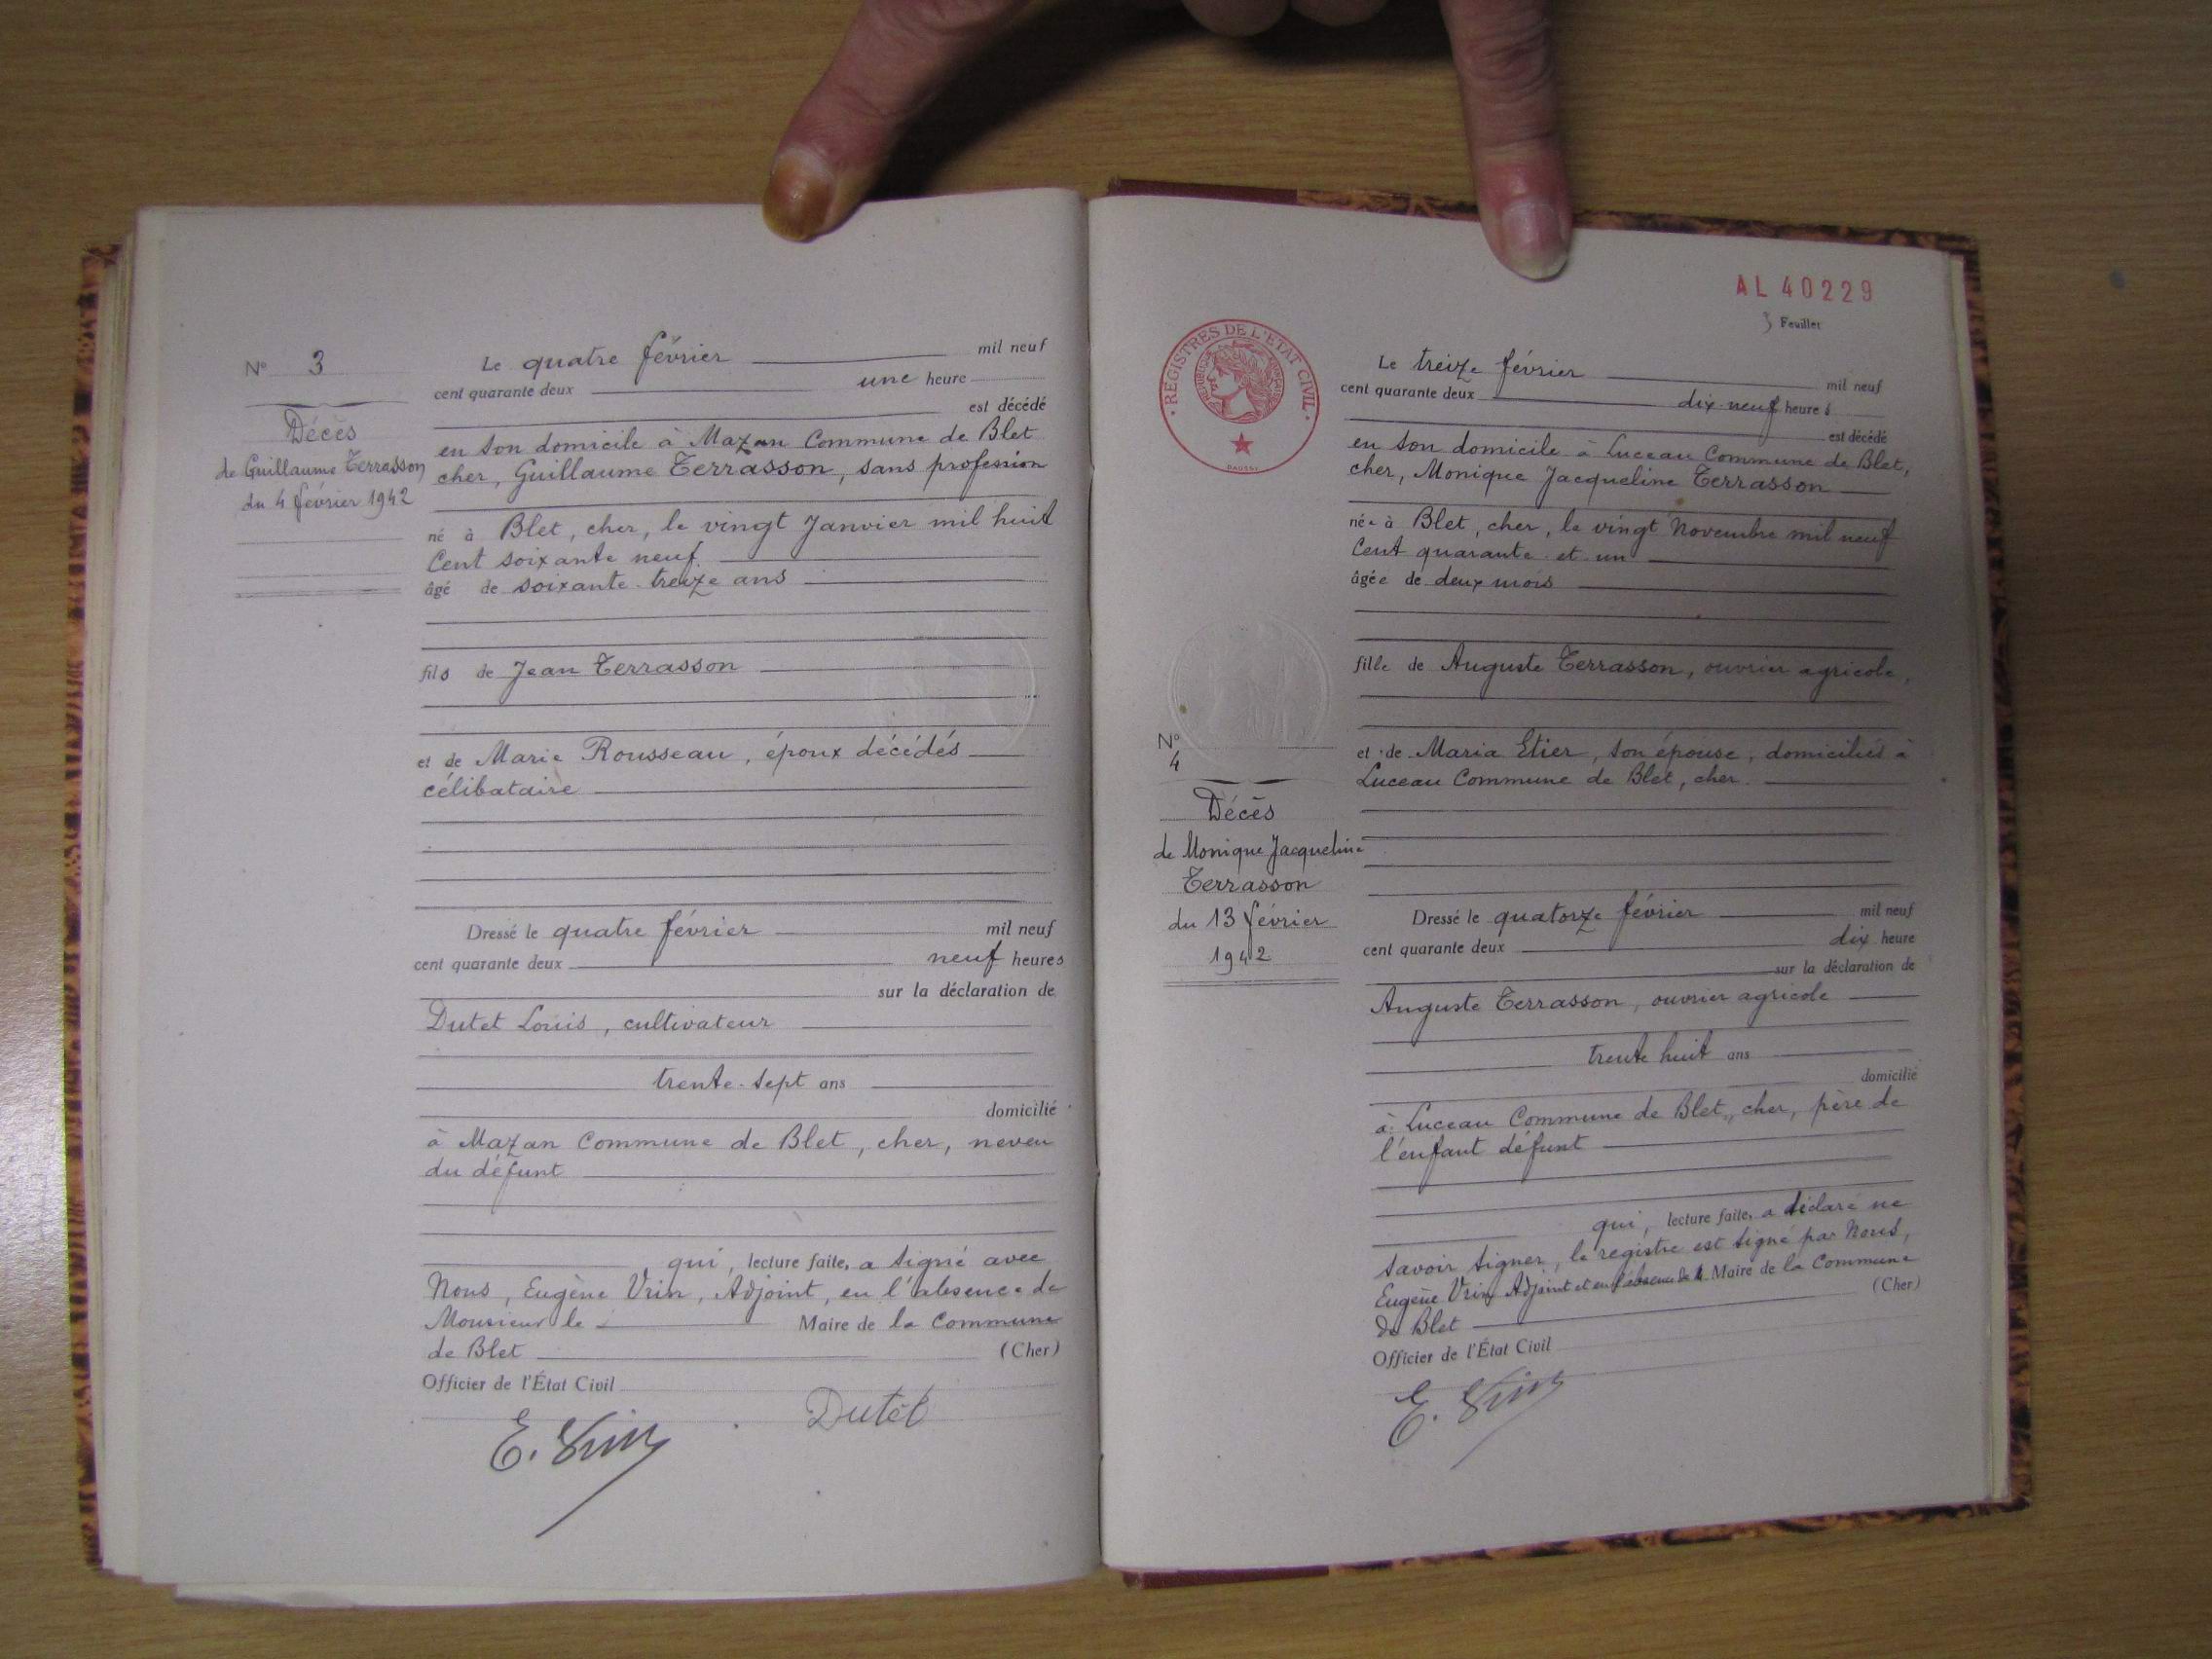 N° 3
Décès
de Guillaume Terrasson
du 4 février 1942
Le quatre février mil neuf
cent quarante deux une heure
est décédé
en son domicile à Mazan Commune de Blet
cher, Guillaume Terrasson, sans profession
né à Blet, cher, le vingt Janvier mil huit
Cent soixante neuf
âgé de soixante-treize ans
fils de Jean Terrasson
et de Marie Rousseau, époux décédés
célibataire
Dressé le quatre février mil neuf
cent quarante deux neuf heures
sur la déclaration de
Dutet Louis, cultivateur
trente-sept ans
domicilié
à Mazan Commune de Blet, cher, neveu
du défunt
qui, lecture faite, a signé avec
Nous, Eugène Vrin, Adjoint, en l'absence de
Monsieur le Maire de la Commune
de Blet (Cher)
Officier de l'État Civil
E. Vrin Dutet
AL 40229
3 Feuillet
REGISTRES DE L'ETAT CIVIL
N°
4
Décès
de Monique Jacqueline
Terrasson
du 13 février
1942
Le treize février mil neuf
cent quarante deux dix-neuf heures
est décédé
en son domicile à Luceau Commune de Blet,
cher, Monique Jacqueline Terrasson
née à Blet, cher, le vingt Novembre mil neuf
Cent quarante et un
âgée de deux mois
fille de Auguste Terrasson, ouvrier agricole,
et de Maria Etier, son épouse, domiciliés à
Luceau Commune de Blet, cher
Dressé le quatorze février mil neuf
cent quarante deux dix heure
sur la déclaration de
Auguste Terrasson, ouvrier agricole
trente huit ans
domicilié
à Luceau Commune de Blet, cher, père de
l'enfant défunt
qui, lecture faite, a déclaré ne
savoir signer, le registre est signé par Nous,
Eugène Vrin, Adjoint et en l'absence de M. Maire de la Commune
de Blet (Cher)
Officier de l'État Civil
E. Vrin